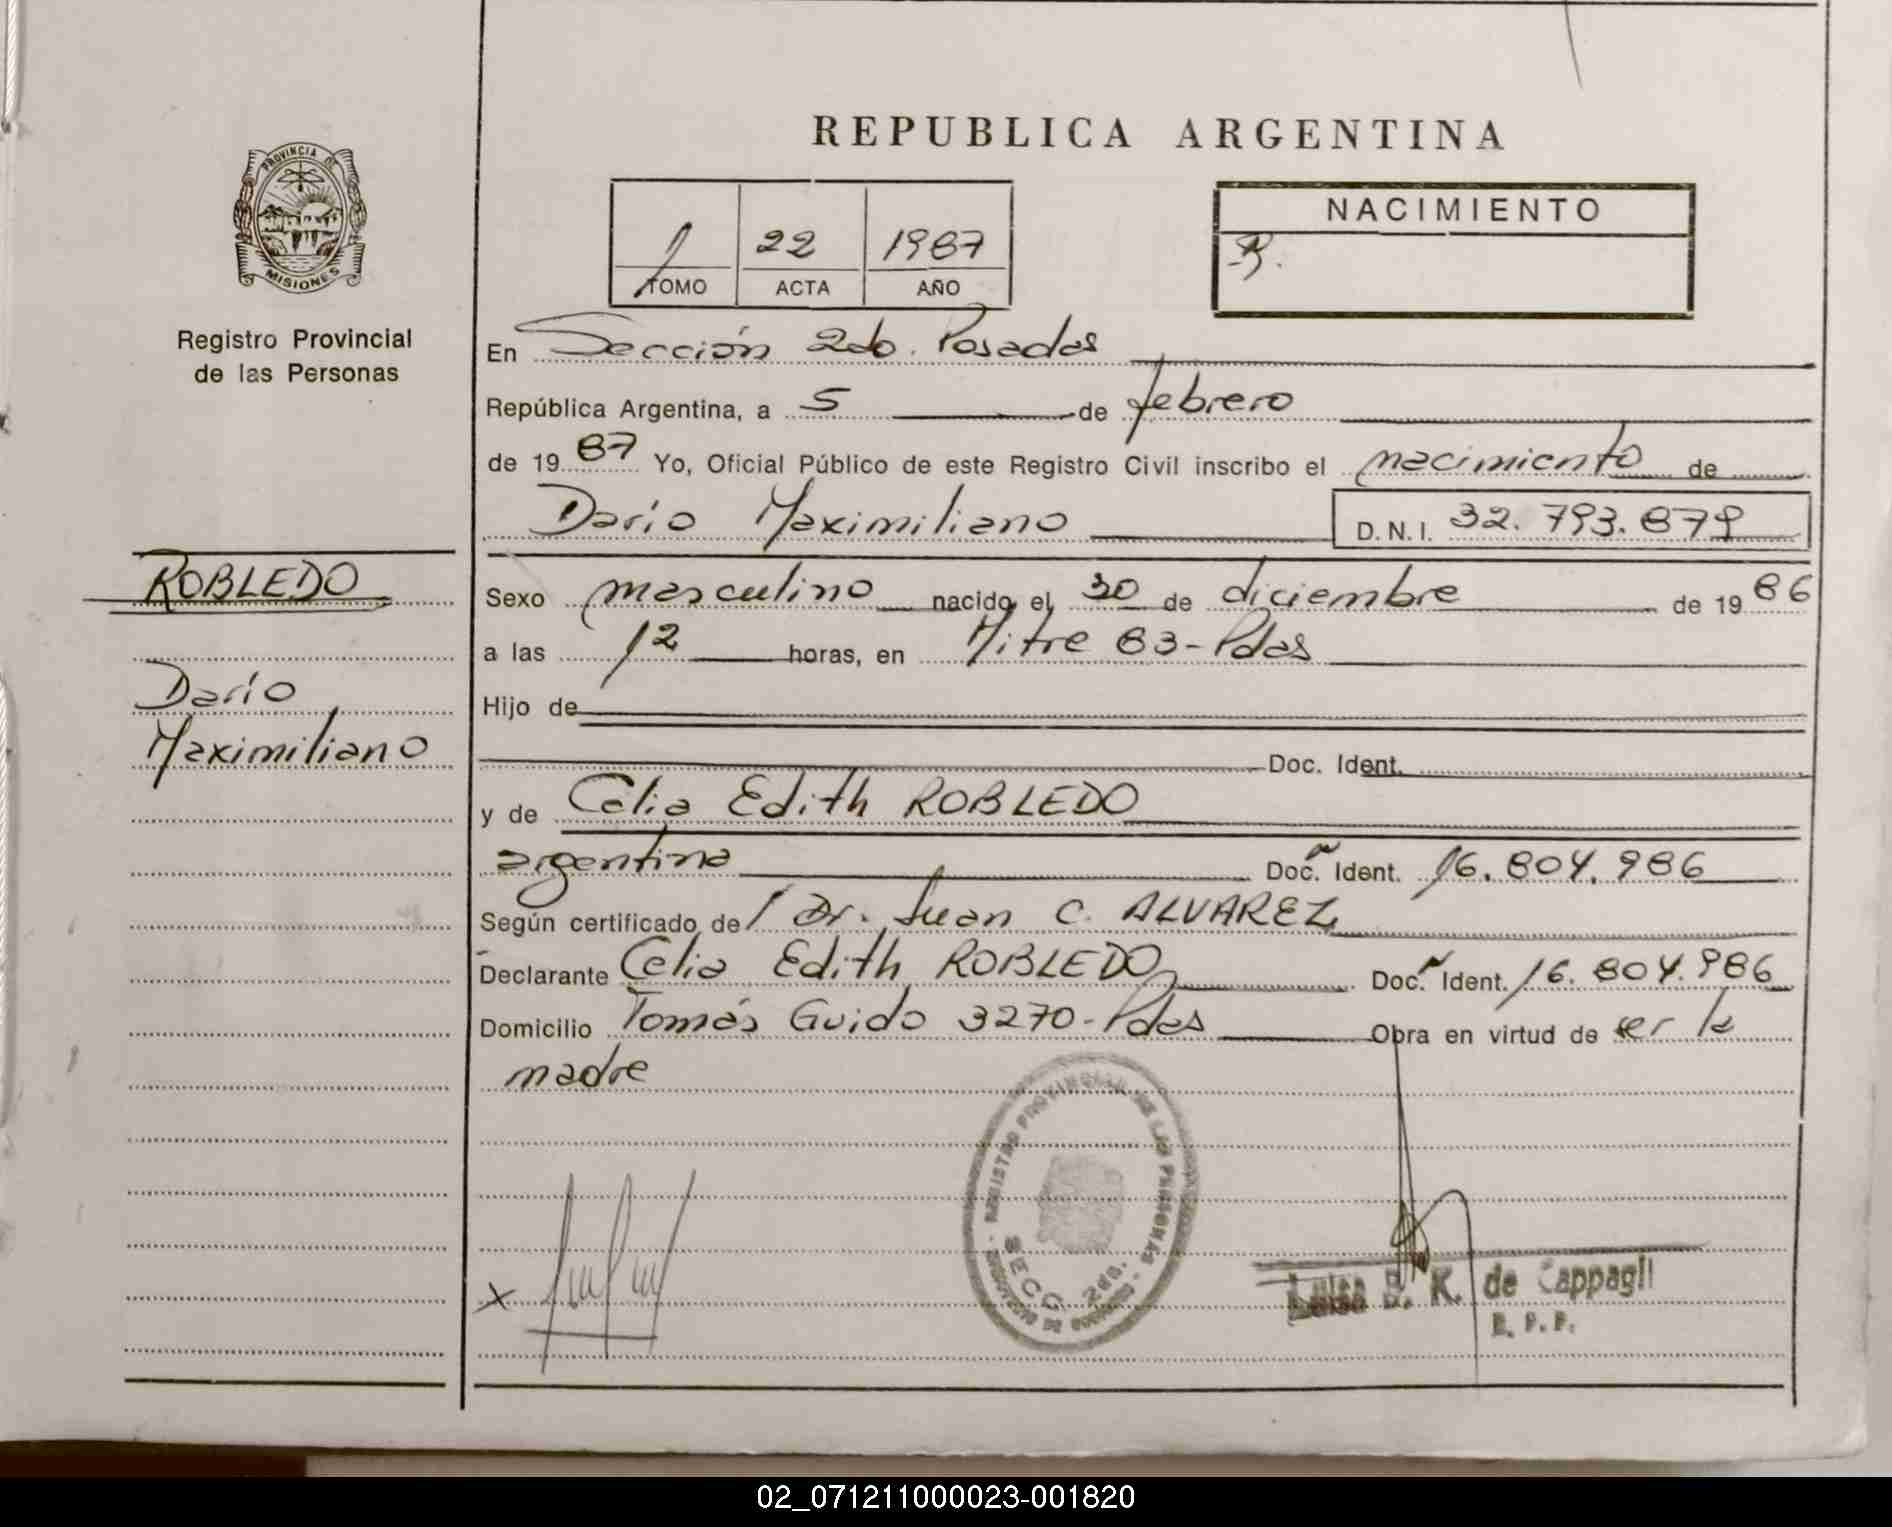 REPUBLICA ARGENTINA
PROVINCIA DE
MISIONES
Registro Provincial
de las Personas
1 22 1987
TOMO ACTA AÑO
NACIMIENTO
R.
En Sección 2da. Posadas
República Argentina, a 5 de febrero
de 1987 Yo, Oficial Público de este Registro Civil inscribo el nacimiento de
Darío Maximiliano D.N.I. 32.793.879
ROBLEDO
Darío
Maximiliano
Sexo masculino nacido el 30 de diciembre de 1986
a las 12 horas, en Mitre 83-Pdas
Hijo de
Doc. Ident.
y de Celia Edith ROBLEDO
argentina Doc. Ident. 16.804.986
Según certificado de Dr. Juan C. ALVAREZ
Declarante Celia Edith ROBLEDO Doc. Ident. 16.804.986
Domicilio Tomás Guido 3270-Pdas Obra en virtud de ser la
madre
REGISTRO PROVINCIAL DE LAS PERSONAS
SECC. 2da.
MINISTERIO DE GOBIERNO
X
Luisa B. K. de Cappagli
02_071211000023-001820